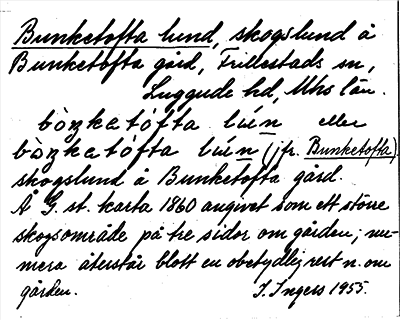 Bunketofta lund, skogslund å
Bunketofta gård, Frillestads sn,
Luggude hd, Mhs län.
bòŋkatófta lu̇n eller
bòŋkatófta lu̇n (jfr. Bunketofta)
skogslund å Bunketofta gård.
Å G. st. karta 1860 angivet som ett större
skogsområde på tre sidor om gården; nu-
mera återstår blott en obetydlig rest n. om
gården. I. Ingers 1955.